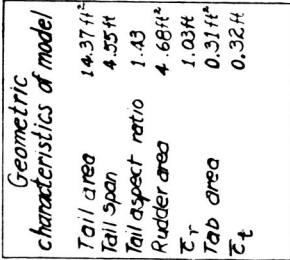 Geometric
characteristics of model
Tail area 14.37 ft²
Tail span 4.55 ft
Tail aspect ratio 1.43
Rudder area 4.68 ft²
c̅r 1.03 ft
Tab area 0.31 ft²
c̅t 0.32 ft